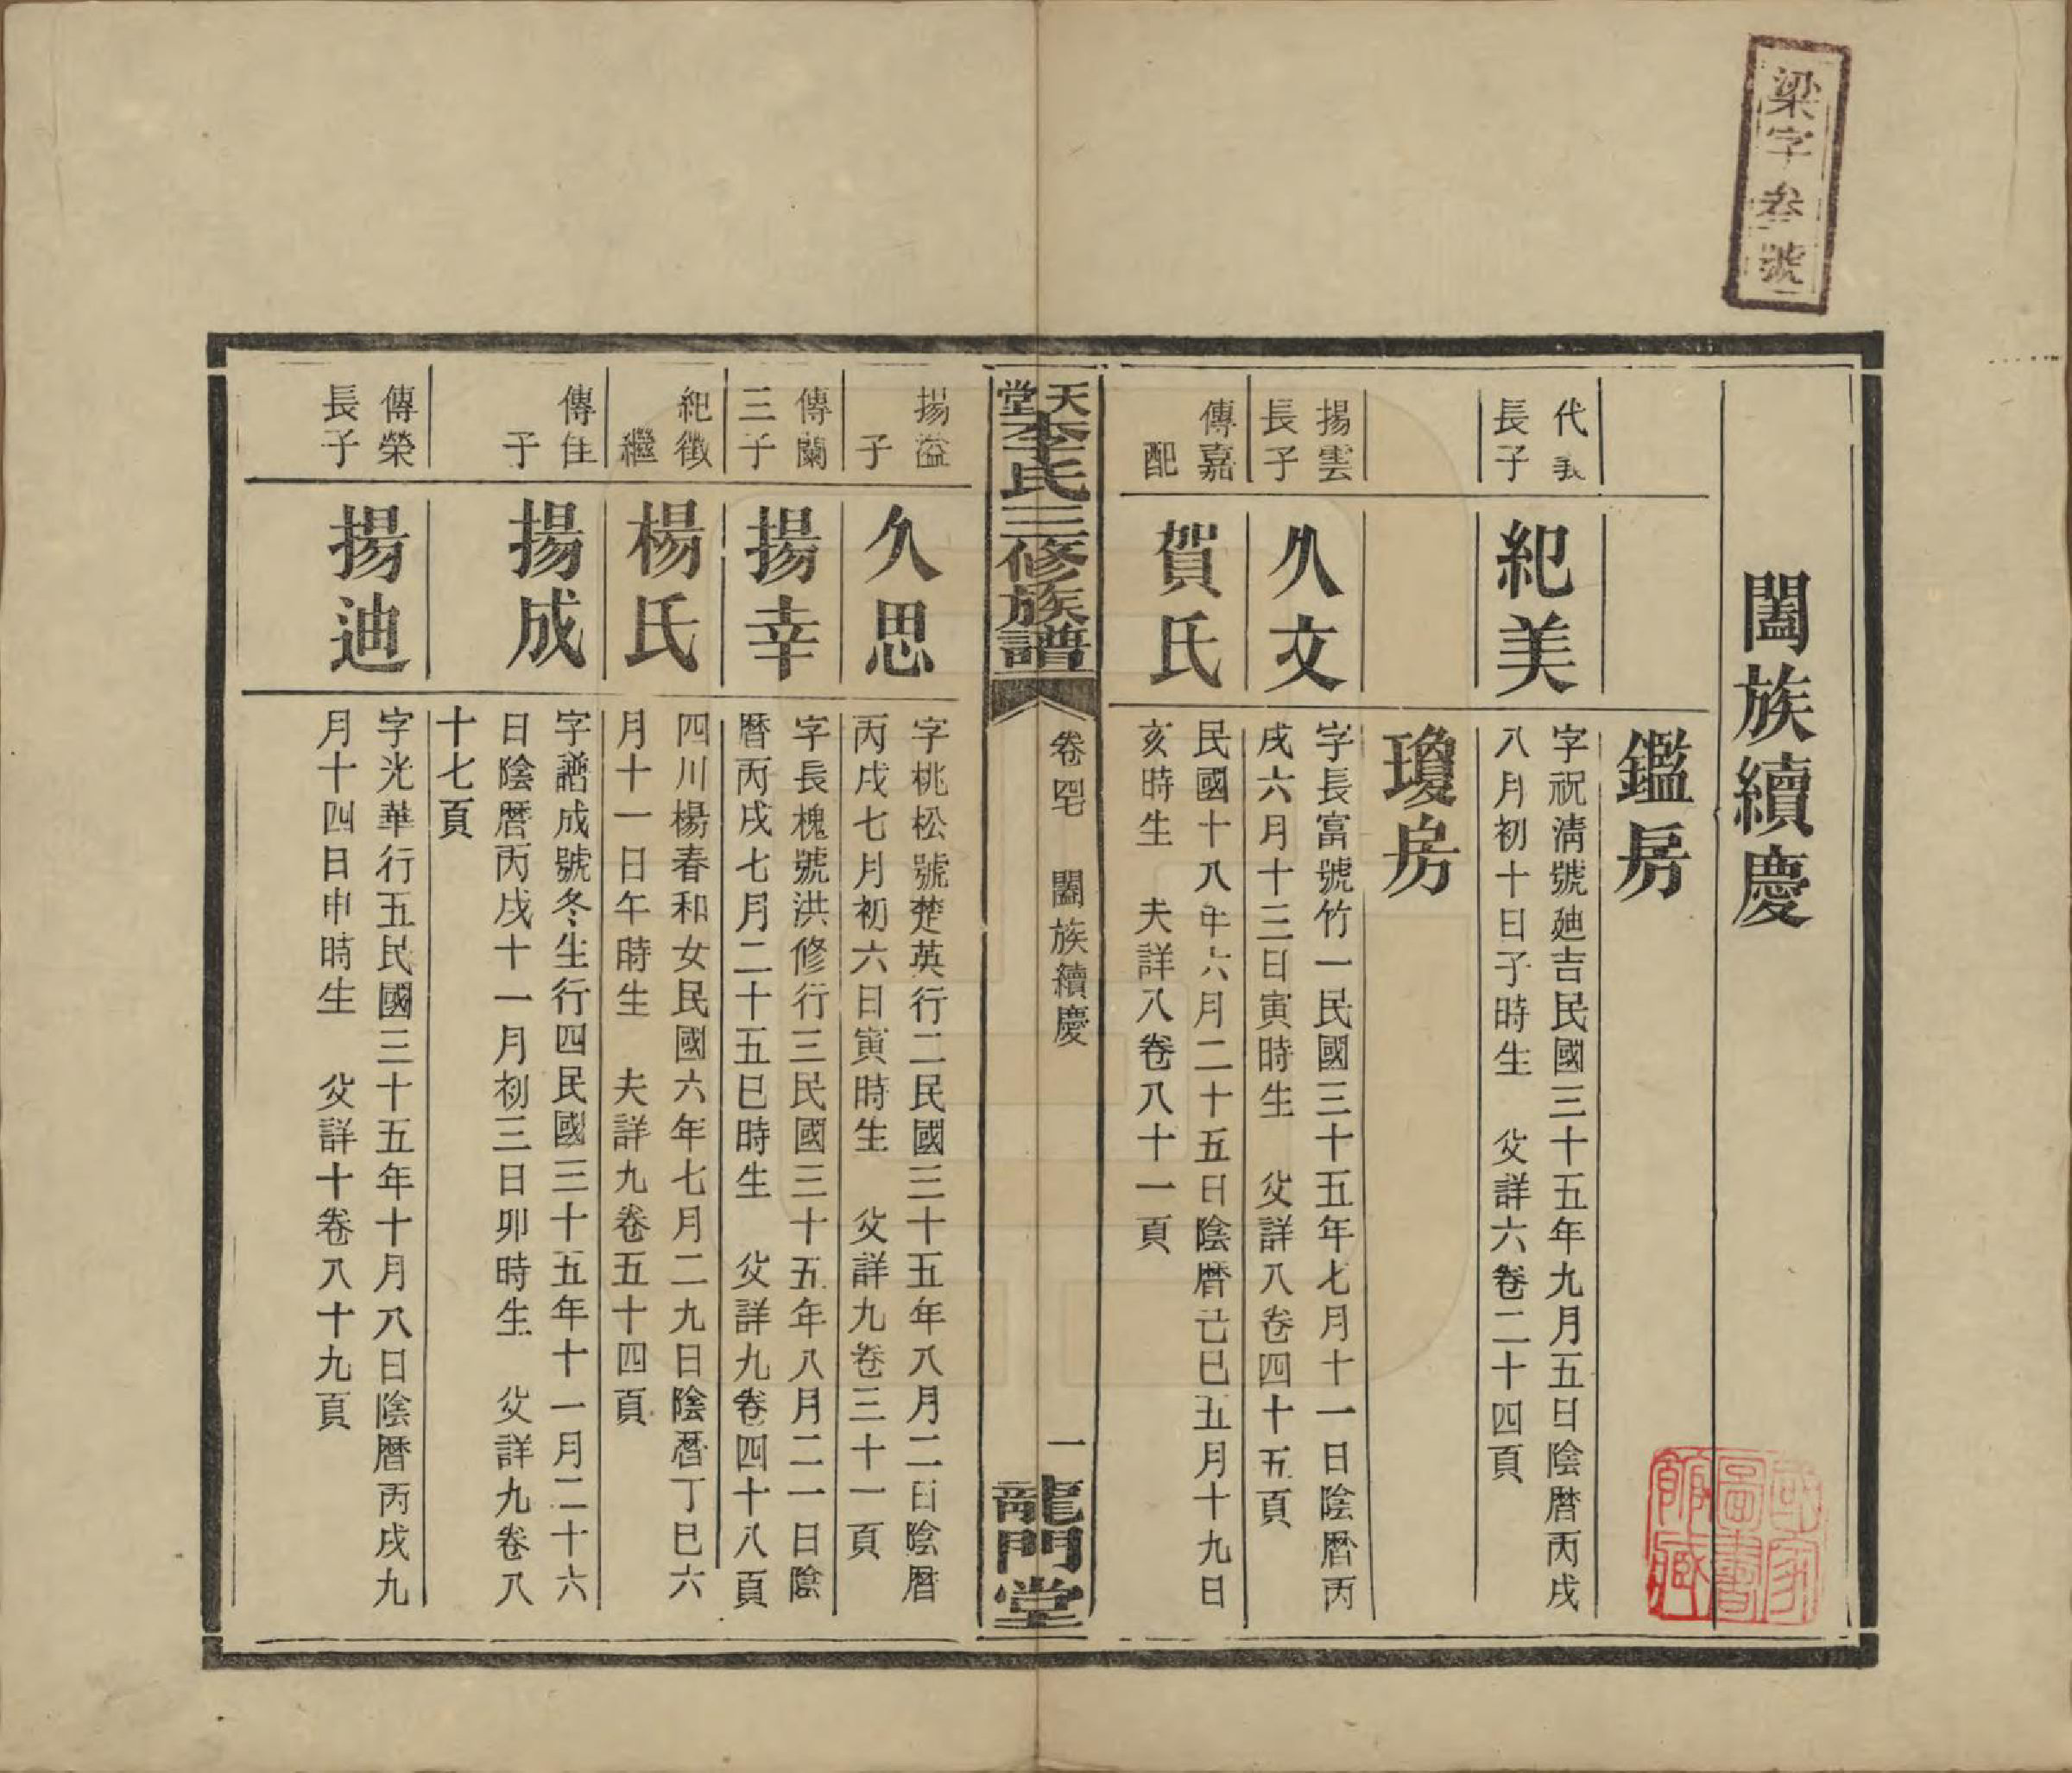 梁字叁號
闔族續慶
鑑房
代義
長子
紀美
字祝淸號廸吉民國三十五年九月五日陰曆丙戌
八月初十日子時生　父詳六卷二十四頁
瓊房
揚雲
長子
久文
字長富號竹一民國三十五年七月十一日陰曆丙
戌六月十三日寅時生　父詳八卷四十五頁
傳嘉
配
賀氏
民國十八年六月二十五日陰曆己巳五月十九日
亥時生　夫詳八卷八十一頁
國家
圖書
館藏
天堂李氏三修族譜
卷四宅　闔族續慶
一
龍門堂
揚溢
子
久思
字桃松號楚英行二民國三十五年八月二日陰曆
丙戌七月初六日寅時生　父詳九卷三十一頁
傳蘭
三子
揚幸
字長槐號洪修行三民國三十五年八月二一日陰
曆丙戌七月二十五巳時生　父詳九卷四十八頁
紀徵
繼
楊氏
四川楊春和女民國六年七月二九日陰曆丁巳六
月十一日午時生　夫詳九卷五十四頁
傳佳
子
揚成
字譜成號冬生行四民國三十五年十一月二十六
日陰曆丙戌十一月初三日卯時生　父詳九卷八
十七頁
傳榮
長子
揚迪
字光華行五民國三十五年十月八日陰曆丙戌九
月十四日申時生　父詳十卷八十九頁